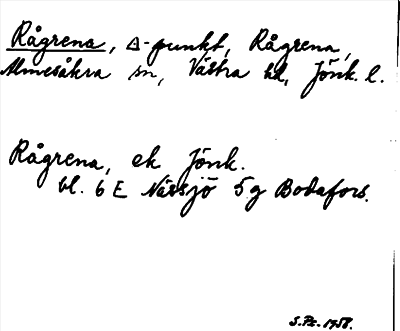 Rågrena, Δ-punkt, Rågrena,
Almesåkra sn, Västra hd, Jönk. l.
Rågrena, ek Jönk.
bl. 6 E Nässjö 5 g Bodafors.
S.Pz. 1958.